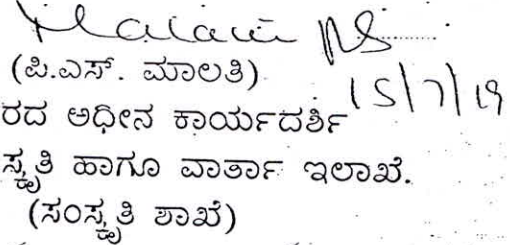 Malati PS
(ಪಿ.ಎಸ್. ಮಾಲತಿ)
15/7/19
ರದ ಅಧೀನ ಕಾರ್ಯದರ್ಶಿ
ಸ್ಕೃತಿ ಹಾಗೂ ವಾರ್ತಾ ಇಲಾಖೆ.
(ಸಂಸ್ಕೃತಿ ಶಾಖೆ)